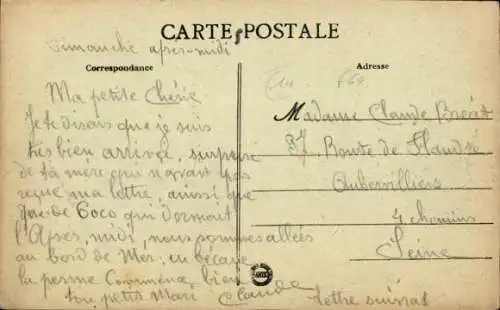 CARTE POSTALE
Dimanche après-midi
Correspondance
Adresse
Ma petite Chérie
Je te disais que je suis
très bien arrivé, surprise
de ta mère qui n'avait pas
reçue ma lettre, aussi que
de Coco qui dormait
l'Après, midi, nous sommes allées
au bord de Mer, en bécane
la perme Commence, bien
ton petit Mari Claude
lettre suivrat
Madame Claude Bréat
37 Route de Flandre
Aubervilliers
4 chemins
Seine